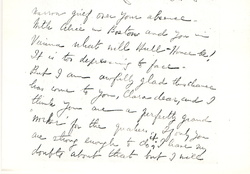 grief over your absence.
With Alice in Boston and you in
Vienna what will Hull-House be!
It is too depressing to face.
But I am awfully glad this chance
has come to you, Clara dear, and I
think you are a perfectly grand
worker for the If only you
are strong enough to do it. I have my
doubts about that but I will